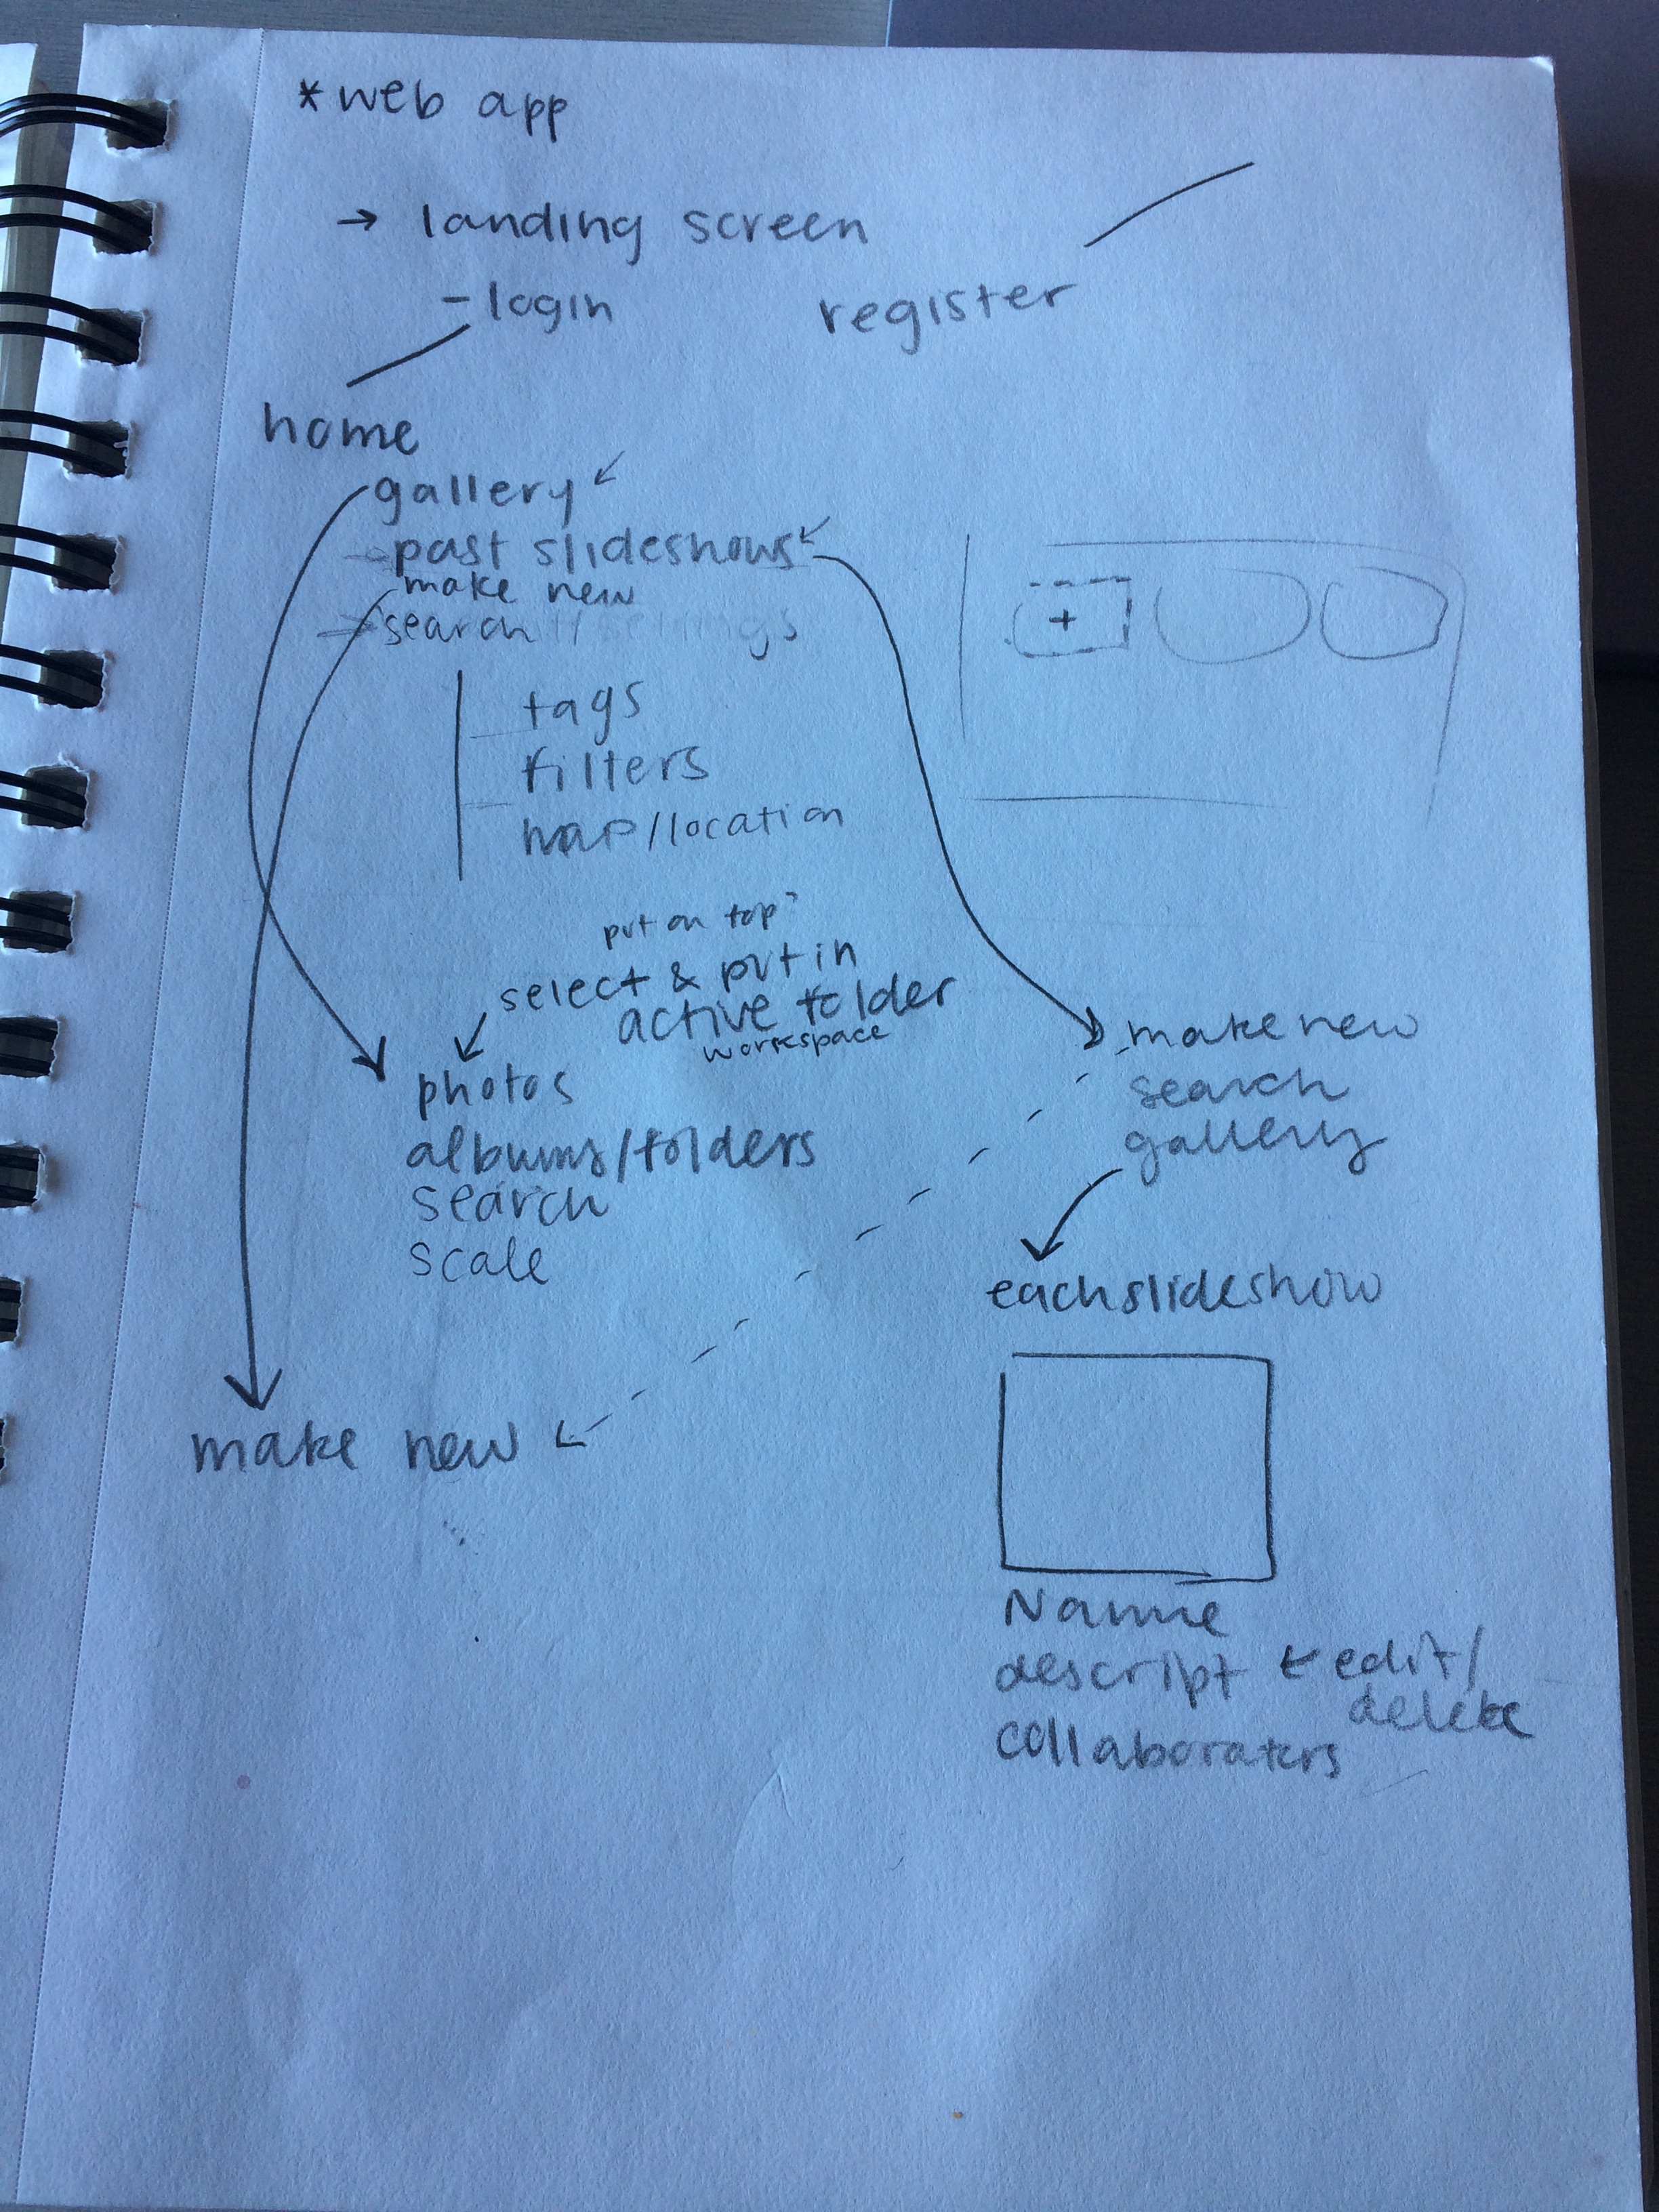 *web app
→ landing screen
- login register
home
gallery
past slideshows
make new
search /settings
tags
filters
map/location
put on top?
select & put in
active folder
workspace
photos
albums/folders
search
scale
make new
search
gallery
each slideshow
make new
+
Name
descript ← edit/
delete
collaboraters